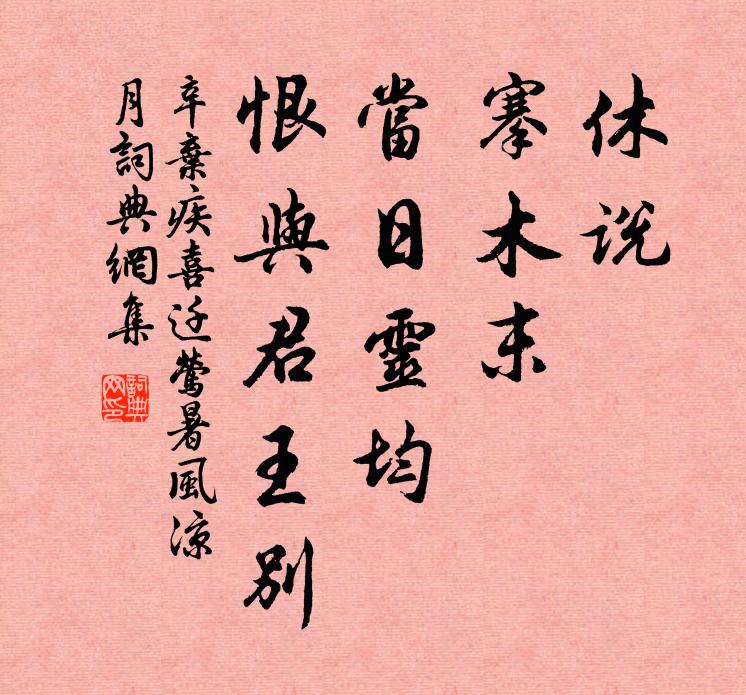 休说
搴木末
當日靈均
恨與君王别
辛棄疾喜迁鶯暑風凉
月詞典網集
詞典
网印